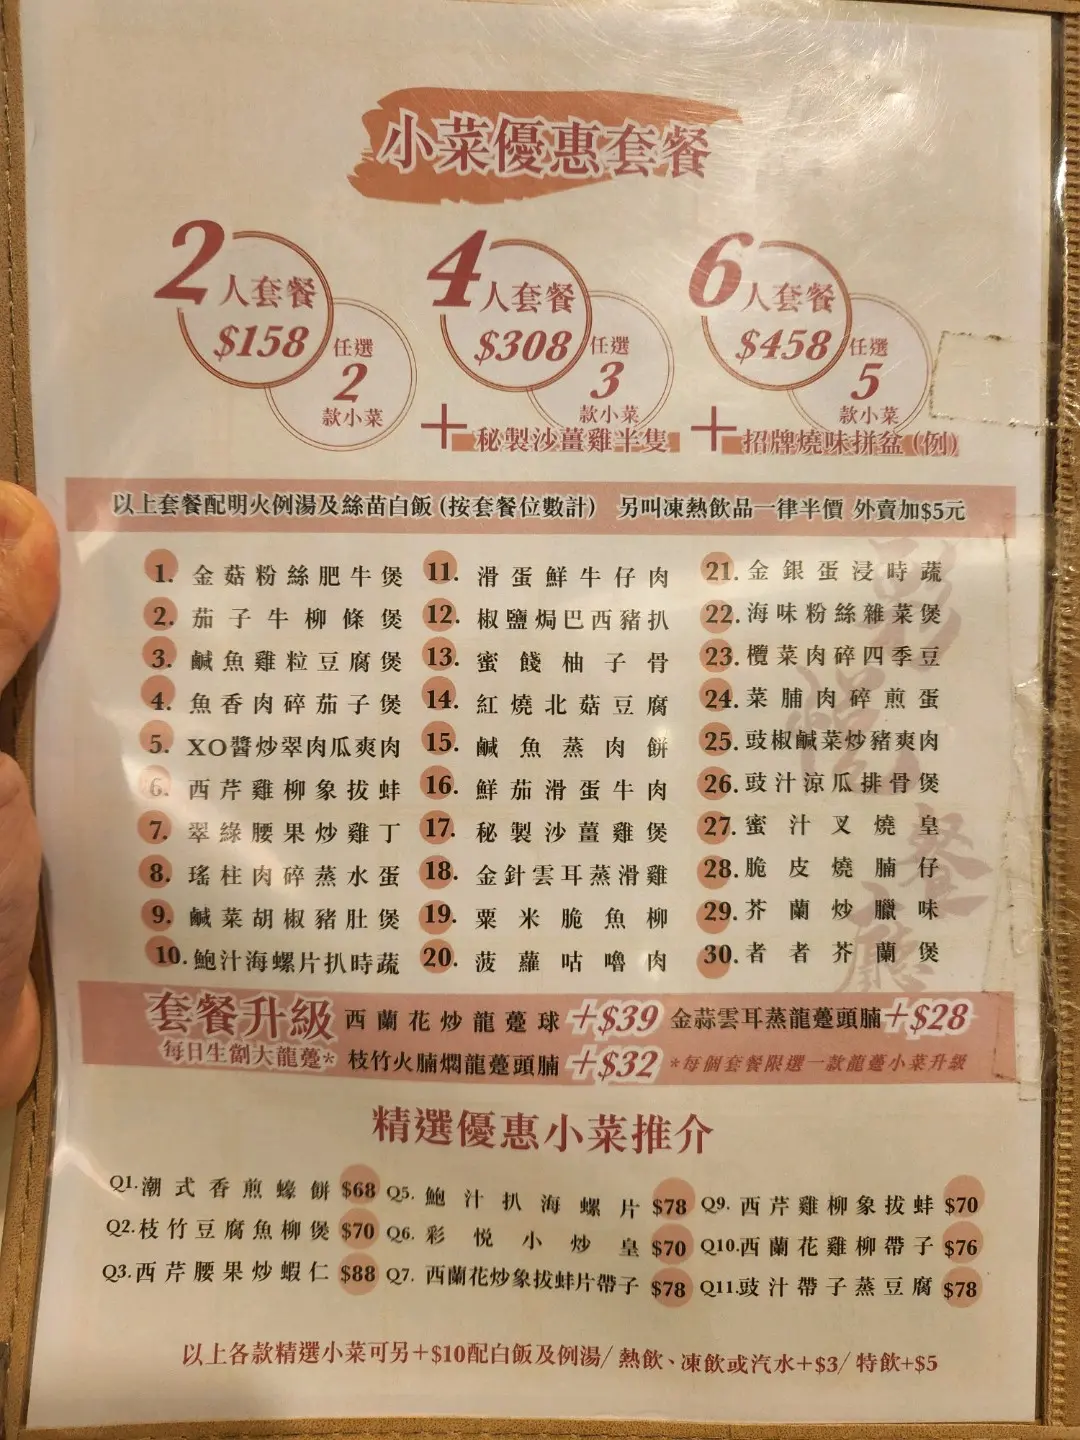 小菜優惠套餐
2人套餐 $158 任選2款小菜
4人套餐 $308 任選3款小菜
+ 秘製沙薑雞半隻
6人套餐 $458 任選5款小菜
+ 招牌燒味拼盆 (例)
以上套餐配明火例湯及絲苗白飯 (按套餐位數計) 另叫凍熱飲品一律半價 外賣加$5元
1. 金菇粉絲肥牛煲
2. 茄子牛柳條煲
3. 鹹魚雞粒豆腐煲
4. 魚香肉碎茄子煲
5. XO醬炒翠肉瓜爽肉
6. 西芹雞柳象拔蚌
7. 翠綠腰果炒雞丁
8. 瑤柱肉碎蒸水蛋
9. 鹹菜胡椒豬肚煲
10. 鮑汁海螺片扒時蔬
11. 滑蛋鮮牛仔肉
12. 椒鹽焗巴西豬扒
13. 蜜餞柚子骨
14. 紅燒北菇豆腐
15. 鹹魚蒸肉餅
16. 鮮茄滑蛋牛肉
17. 秘製沙薑雞煲
18. 金針雲耳蒸滑雞
19. 粟米脆魚柳
20. 菠蘿咕嚕肉
21. 金銀蛋浸時蔬
22. 海味粉絲雜菜煲
23. 欖菜肉碎四季豆
24. 菜脯肉碎煎蛋
25. 豉椒鹹菜炒豬爽肉
26. 豉汁涼瓜排骨煲
27. 蜜汁叉燒皇
28. 脆皮燒腩仔
29. 芥蘭炒臘味
30. 者者芥蘭煲
彩悅餐廳
套餐升級
每日生劏大龍躉*
西蘭花炒龍躉球 +$39 金蒜雲耳蒸龍躉頭腩 +$28
枝竹火腩燜龍躉頭腩 +$32 *每個套餐限選一款龍躉小菜升級
精選優惠小菜推介
Q1. 潮式香煎蠔餅 $68
Q2. 枝竹豆腐魚柳煲 $70
Q3. 西芹腰果炒蝦仁 $88
Q5. 鮑汁扒海螺片 $78
Q6. 彩悅小炒皇 $70
Q7. 西蘭花炒象拔蚌片帶子 $78
Q9. 西芹雞柳象拔蚌 $70
Q10. 西蘭花雞柳帶子 $76
Q11. 豉汁帶子蒸豆腐 $78
以上各款精選小菜可另+$10配白飯及例湯/ 熱飲、凍飲或汽水+$3/ 特飲+$5